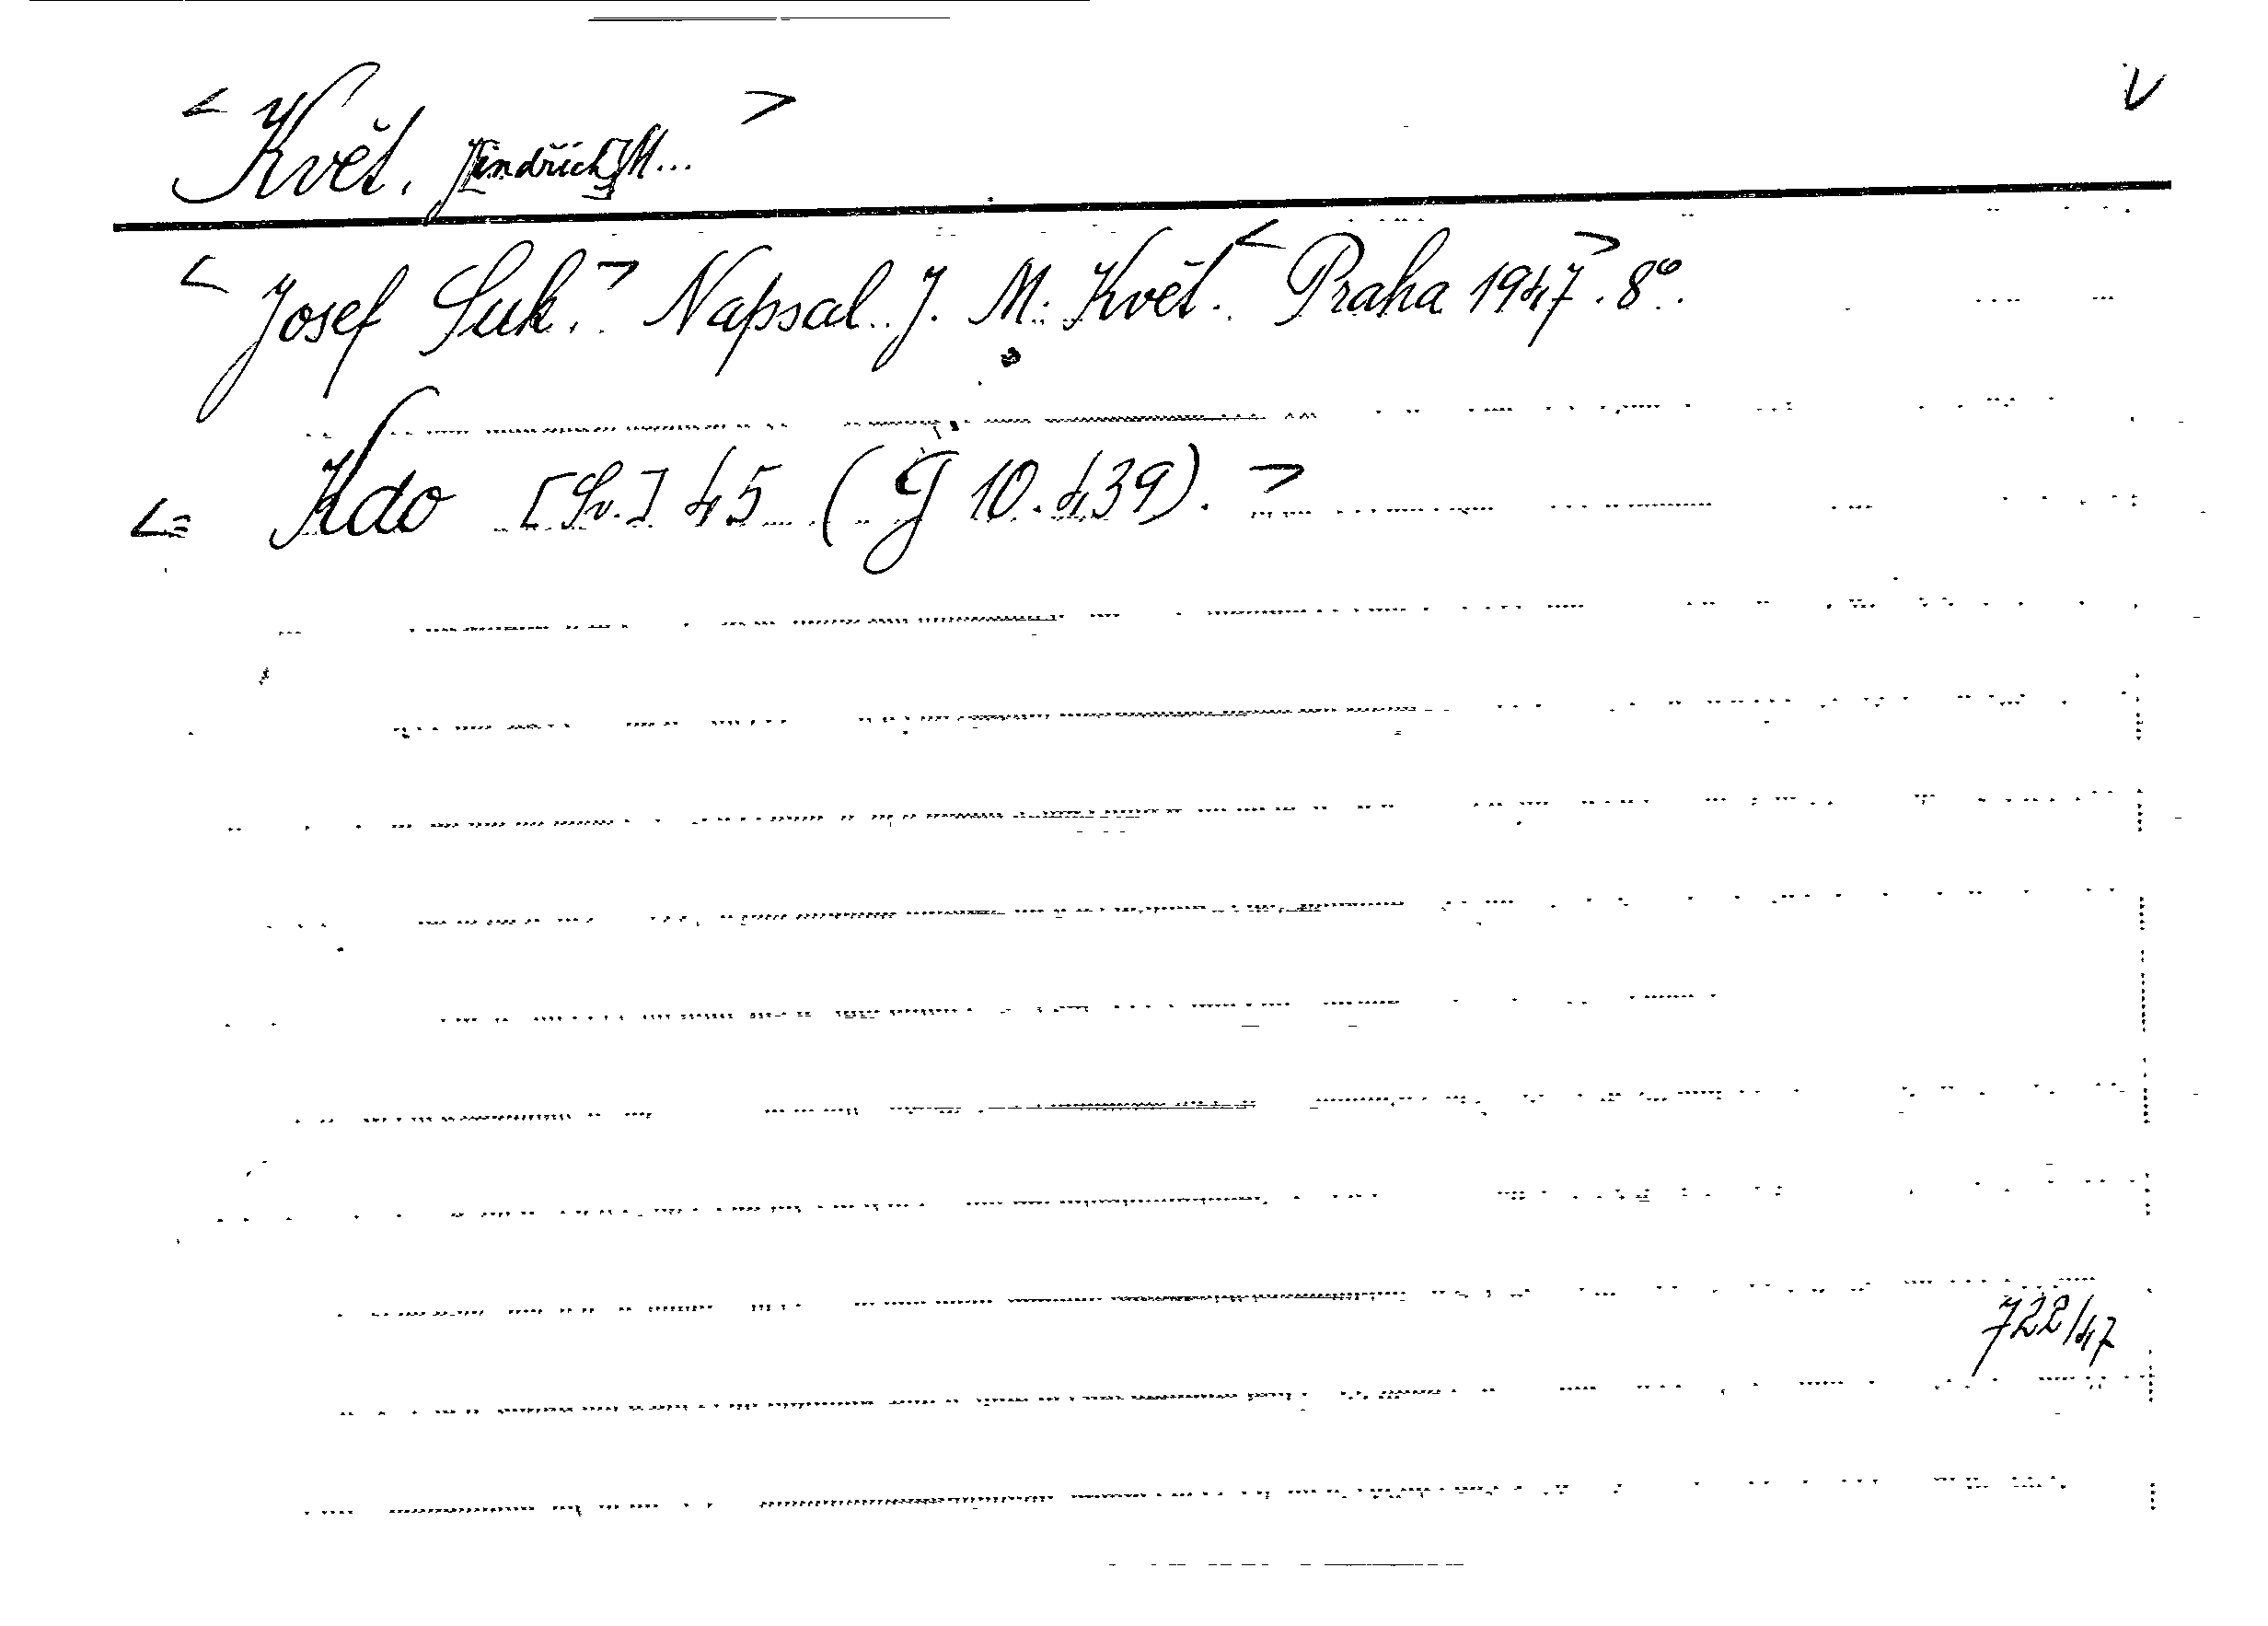 < Květ, J[indřich] M... > V
< Josef Suk. > Napsal J. M. Květ. < Praha 1947. > 8°.
<= Kdo [Sv.] 45 (G 10.439). >
722/47